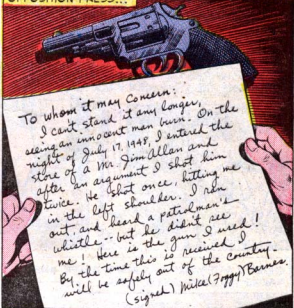 OPPOSITION PRESS...
To whom it may concern:
I can't stand it any longer,
seeing an innocent man burn. On the
night of July 17, 1948, I entered the
store of a Mr. Jim Allan and
after an argument I shot him
twice. He shot once, hitting me
in the left shoulder. I ran
out and heard a patrolman's
whistle -- but he didn't see
me! Here is the gun I used!
By the time this is received I
will be safely out of the country.
(signed) Mike (Foggy) Barnes.